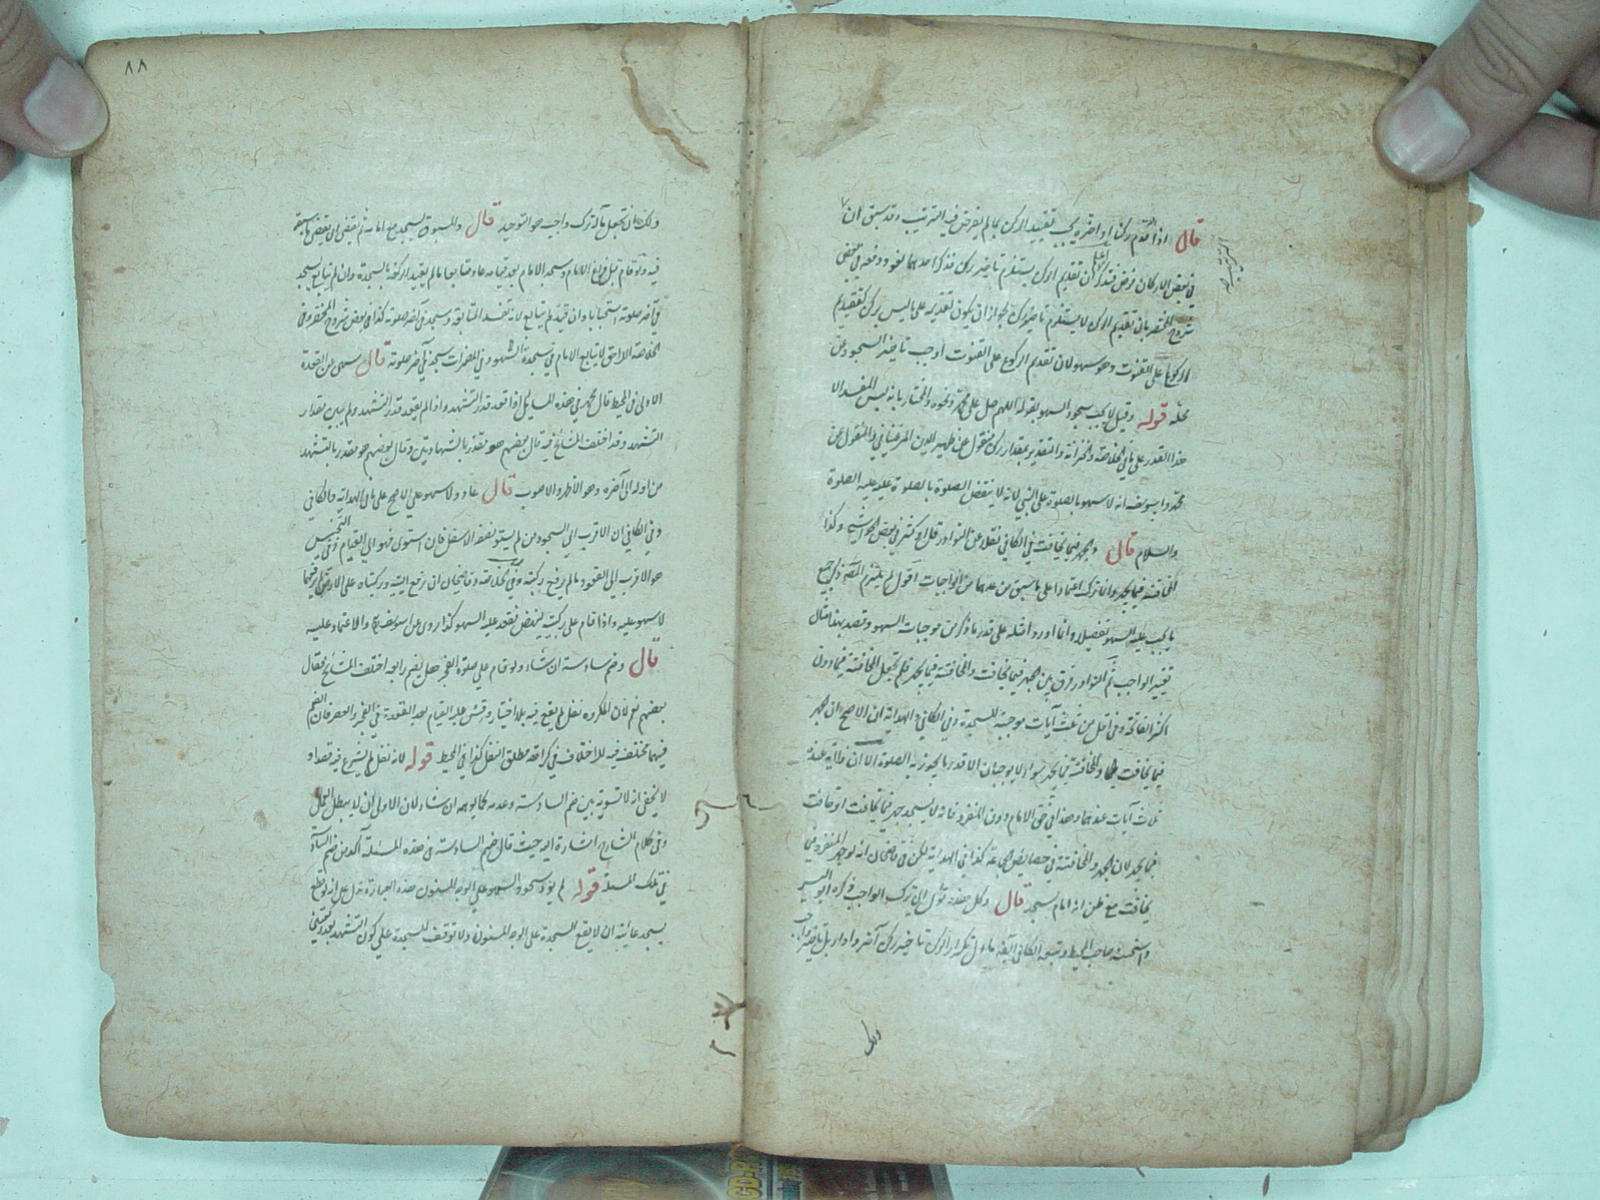 قال اذا قدم ركنا او اخره يجب تقييد الركن بما لم يفرض فيه الترتيب وقد سبق ان
في بعض الاركان فرض فتذكر ان تقديم الركن يستلزم تاخير ركن فذكر احدهما لغو ودفعه في بعض
شروح المختصر بان تقديم الركن لا يستلزم تاخير ركن لجواز ان يكون تقديمه على ما ليس بركن كتقديم
الركوع على القنوت وهو سهو لان تقديم الركوع على القنوت اوجب تاخير السجود عن
محله قوله وقيل لا يجب سجود السهو بقوله اللهم صل على محمد ونحوه والمختار بانه ليس المفسد الا
هذا القدر على ما في الخلاصة والخزانة والتقدير بمقدار ركن منقول عن ظهير الدين المرغيناني والمنقول عن
محمد وابي يوسف انه لا سهو بالصلوة على النبي لانه لا ينقض الصلوة بالصلوة عليه عليه الصلوة
والسلام قال والجهر فيما يخافت في الكافي نقلا عن النوادر قل او كثر في بعض الحواشي وكذا
المخافتة فيما يجهر وانما ترك اعتمادا على ما سبق من عدهما من الواجبات اقول لم يلتزم المص ذكر جميع
ما يجب عليه السهو تفصيلا وانما اورد امثلة على قدر ما ذكر من موجبات السهو وقصد بهذا مثال
تغيير الواجب ثم النوادر فرق بين الجهر فيما يخافت والمخافتة فيما يجهر فلم يجعل المخافتة فيما دون
اكثر الفاتحة وفي اقل من ثلث آيات موجبة للسجدة وفي الكافي والهداية ان الاصح ان الجهر
فيما يخافت والمخافتة فيما يجهر سواء لا يوجبان الا قدر ما يجوز به الصلوة الا ان ذا آية عنده
ثلاث آيات عندهما وهذا في حق الامام دون المنفرد فانه لا يسجد جهر فيما يخافت او خافت
فيما يجهر لان الجهر والمخافتة في خصايص الجماعة كذا في الهداية لكن في قاضيخان انه لو جهر المنفرد فيما
يخافت مع ظن انه امام يسجد قال وكل هذه تؤل الى ترك الواجب ذكره ابو اليسر
واستحسنه صاحب المحيط وتبعه الكافي
ولك
٨٨
ولك ان تجعل مآله ترك واجب هو التوحيد قال والمسبوق يسجد مع امامه ثم يقضي اي يقضي ما سبق
فيه ولو قام قبل فراغ الامام وسجد الامام بعد قيامه عاد متابعا ما لم يقيد الركعة بالسجدة وان لم يتابع سجد
في آخر صلوته استحبابا وان قيد لم يتابع لانه تفسد المتابعة وسجد في آخر صلوته كذا في بعض شروح المختصر وفي
الخلاصة اللاحق لا يتابع الامام في سجدة السهو وفي المضمرات سجد في آخر صلوته قال سهى عن القعدة
الاولى في المحيط قال محمد في هذه المسايل اذا قعد قدر التشهد واذا لم يقعد قدر التشهد ولم يبين مقدار
التشهد وقد اختلف المشايخ فيه قال بعضهم هو مقدر بالشهادتين وقال بعضهم هو مقدر بالتشهد
من اوله الى آخره وهو الاظهر والاصوب قال عاد ولا سهو على الاصح على ما في الهداية والكافي
وفي الكافي ان الاقرب الى السجود من لم يستو نصفه الاسفل فان استوى فهو الى القيام وفي التجنيس
هو الاقرب الى القعود ما لم يرفع ركبتيه وفي الخلاصة وقاضيخان ان رفع اليتيه وركبتاه على الارض لم يرفعهما
لا سهو عليه واذا قام على ركبتيه لينهض فقعد عليه السهو كذا روي عن ابي يوسف والاعتماد عليه
قال وضم سادسة ان شاء ولو قام على صلوة الفجر هل يضم رابعة اختلف المشايخ فقال
بعضهم نعم لان المكروه نفل لم يقع فيه بلا اختيار وقس عليه القيام بعد القعدة في الفجر والعصر فان الضم
فيهما مختلف فيه للاختلاف في كراهة مطلق النفل كذا في المحيط قوله لانه نفل لم يشرع فيه قصدا و
لا يخفى انه لا تسوية بين ضم السادسة وعدمه كما يوهمه ان شاء لان الاولى ان لا يبطل العمل
وفي كلام الشارح اشارة اليه حيث قال ضم السادسة في هذه المسئلة آكد من ضم السادسة
في تلك المسئلة قوله لم يؤد سجود السهو على الوجه المسنون هذه العبارة تدل على انه لو قطع
يسجد غايته ان لا يقع السجدة على الوجه المسنون ولا توقف للسجدة على كون التشهد بعد ركعتين